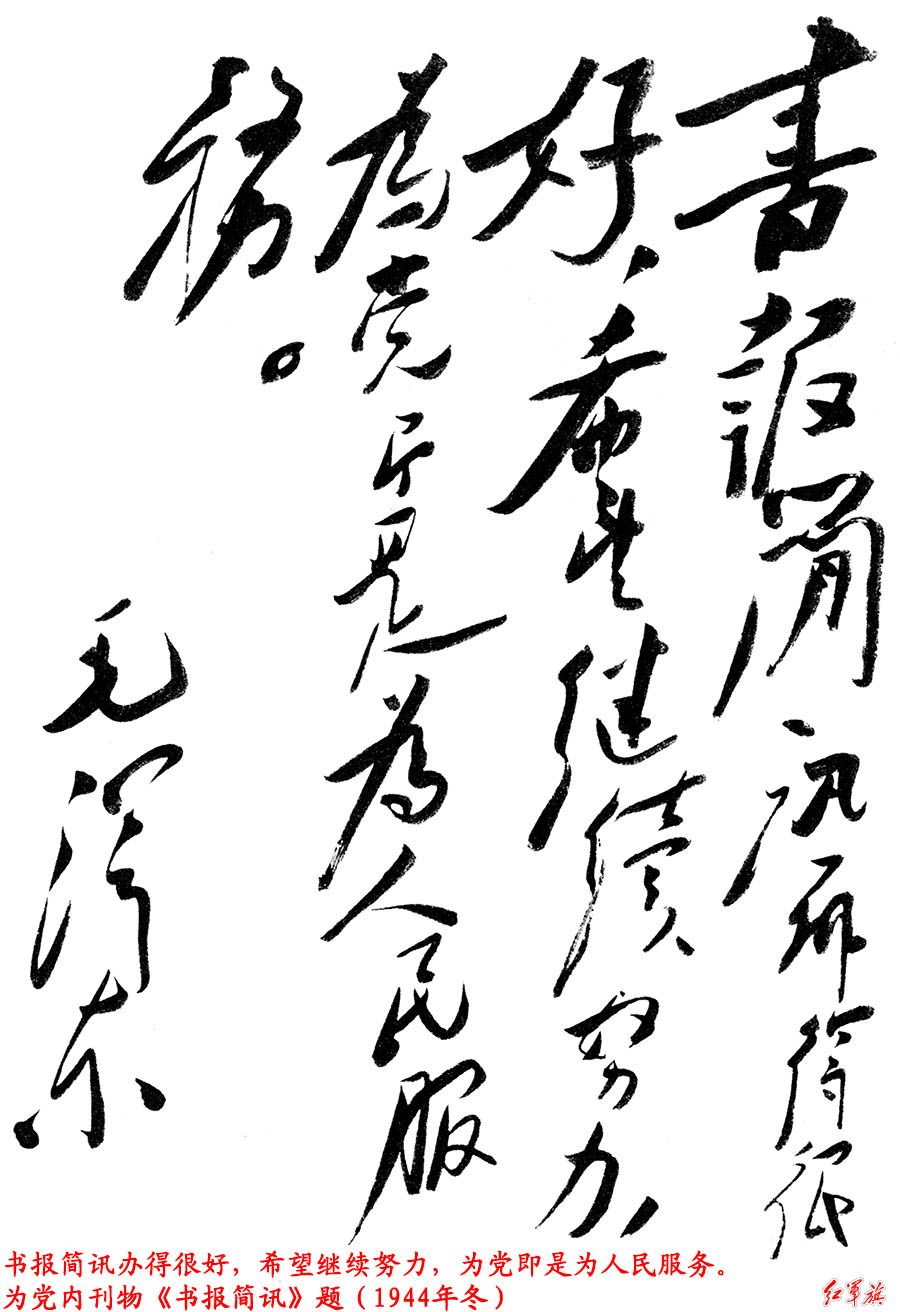 書報簡訊办得很
好，希望继續努力，
為党即是為人民服
務。
毛泽东
书报简讯办得很好，希望继续努力，为党即是为人民服务。
为党内刊物《书报简讯》题（1944年冬）
红军旗